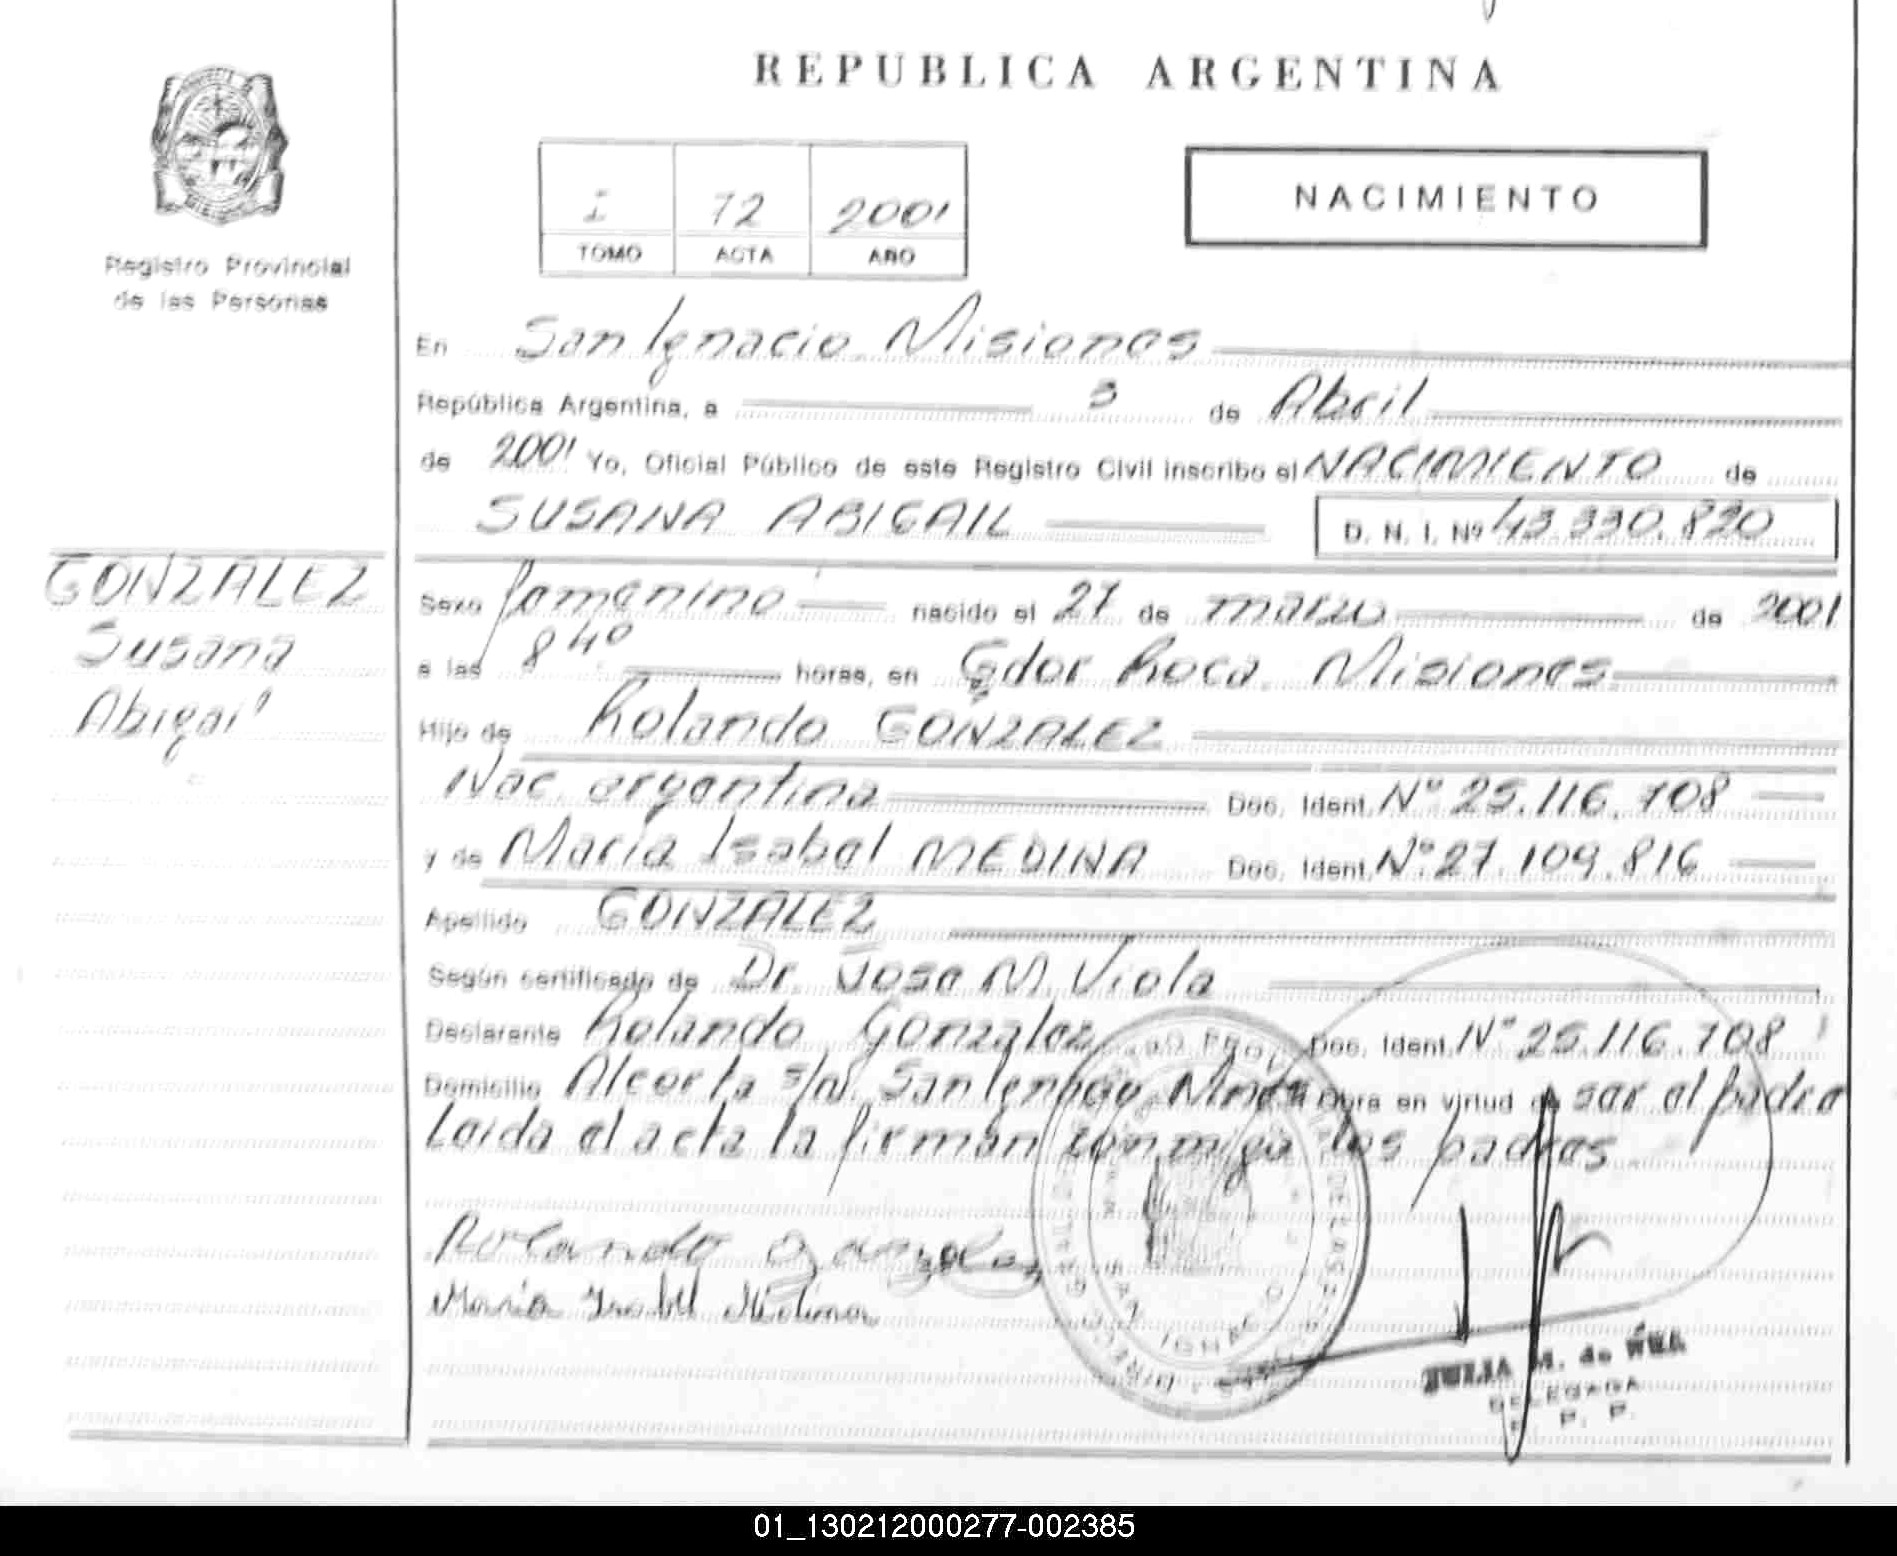 REPUBLICA ARGENTINA
Registro Provincial
de las Personas
I 72 2001
TOMO ACTA AÑO
NACIMIENTO
En San Ignacio Misiones
República Argentina, a 3 de Abril
de 2001 Yo, Oficial Público de este Registro Civil inscribo el NACIMIENTO de
SUSANA ABIGAIL D. N. I. Nº 43.330.820
GONZALEZ
Susana
Abigail
Sexo femenino nacido el 27 de marzo de 2001
a las 8 40 horas, en Gdor Roca. Misiones
Hijo de Rolando GONZALEZ
Nac. argentina Doc. Ident. Nº 25.116.708
y de María Isabel MEDINA Doc. Ident. Nº 27.109.816
Apellido GONZALEZ
Según certificado de Dr. Jose M. Viola
Declarante Rolando Gonzalez Doc. Ident. Nº 25.116.708
Domicilio Alcorta s/nº. San Ignacio Mnes Obra en virtud de ser el padre
Leída el acta la firman conmigo los padres
Rolando Gonzalez
María Isabel Medina
SAN IGNACIO
JULIA M. de
DELEGADA
R. P. P.
01_130212000277-002385